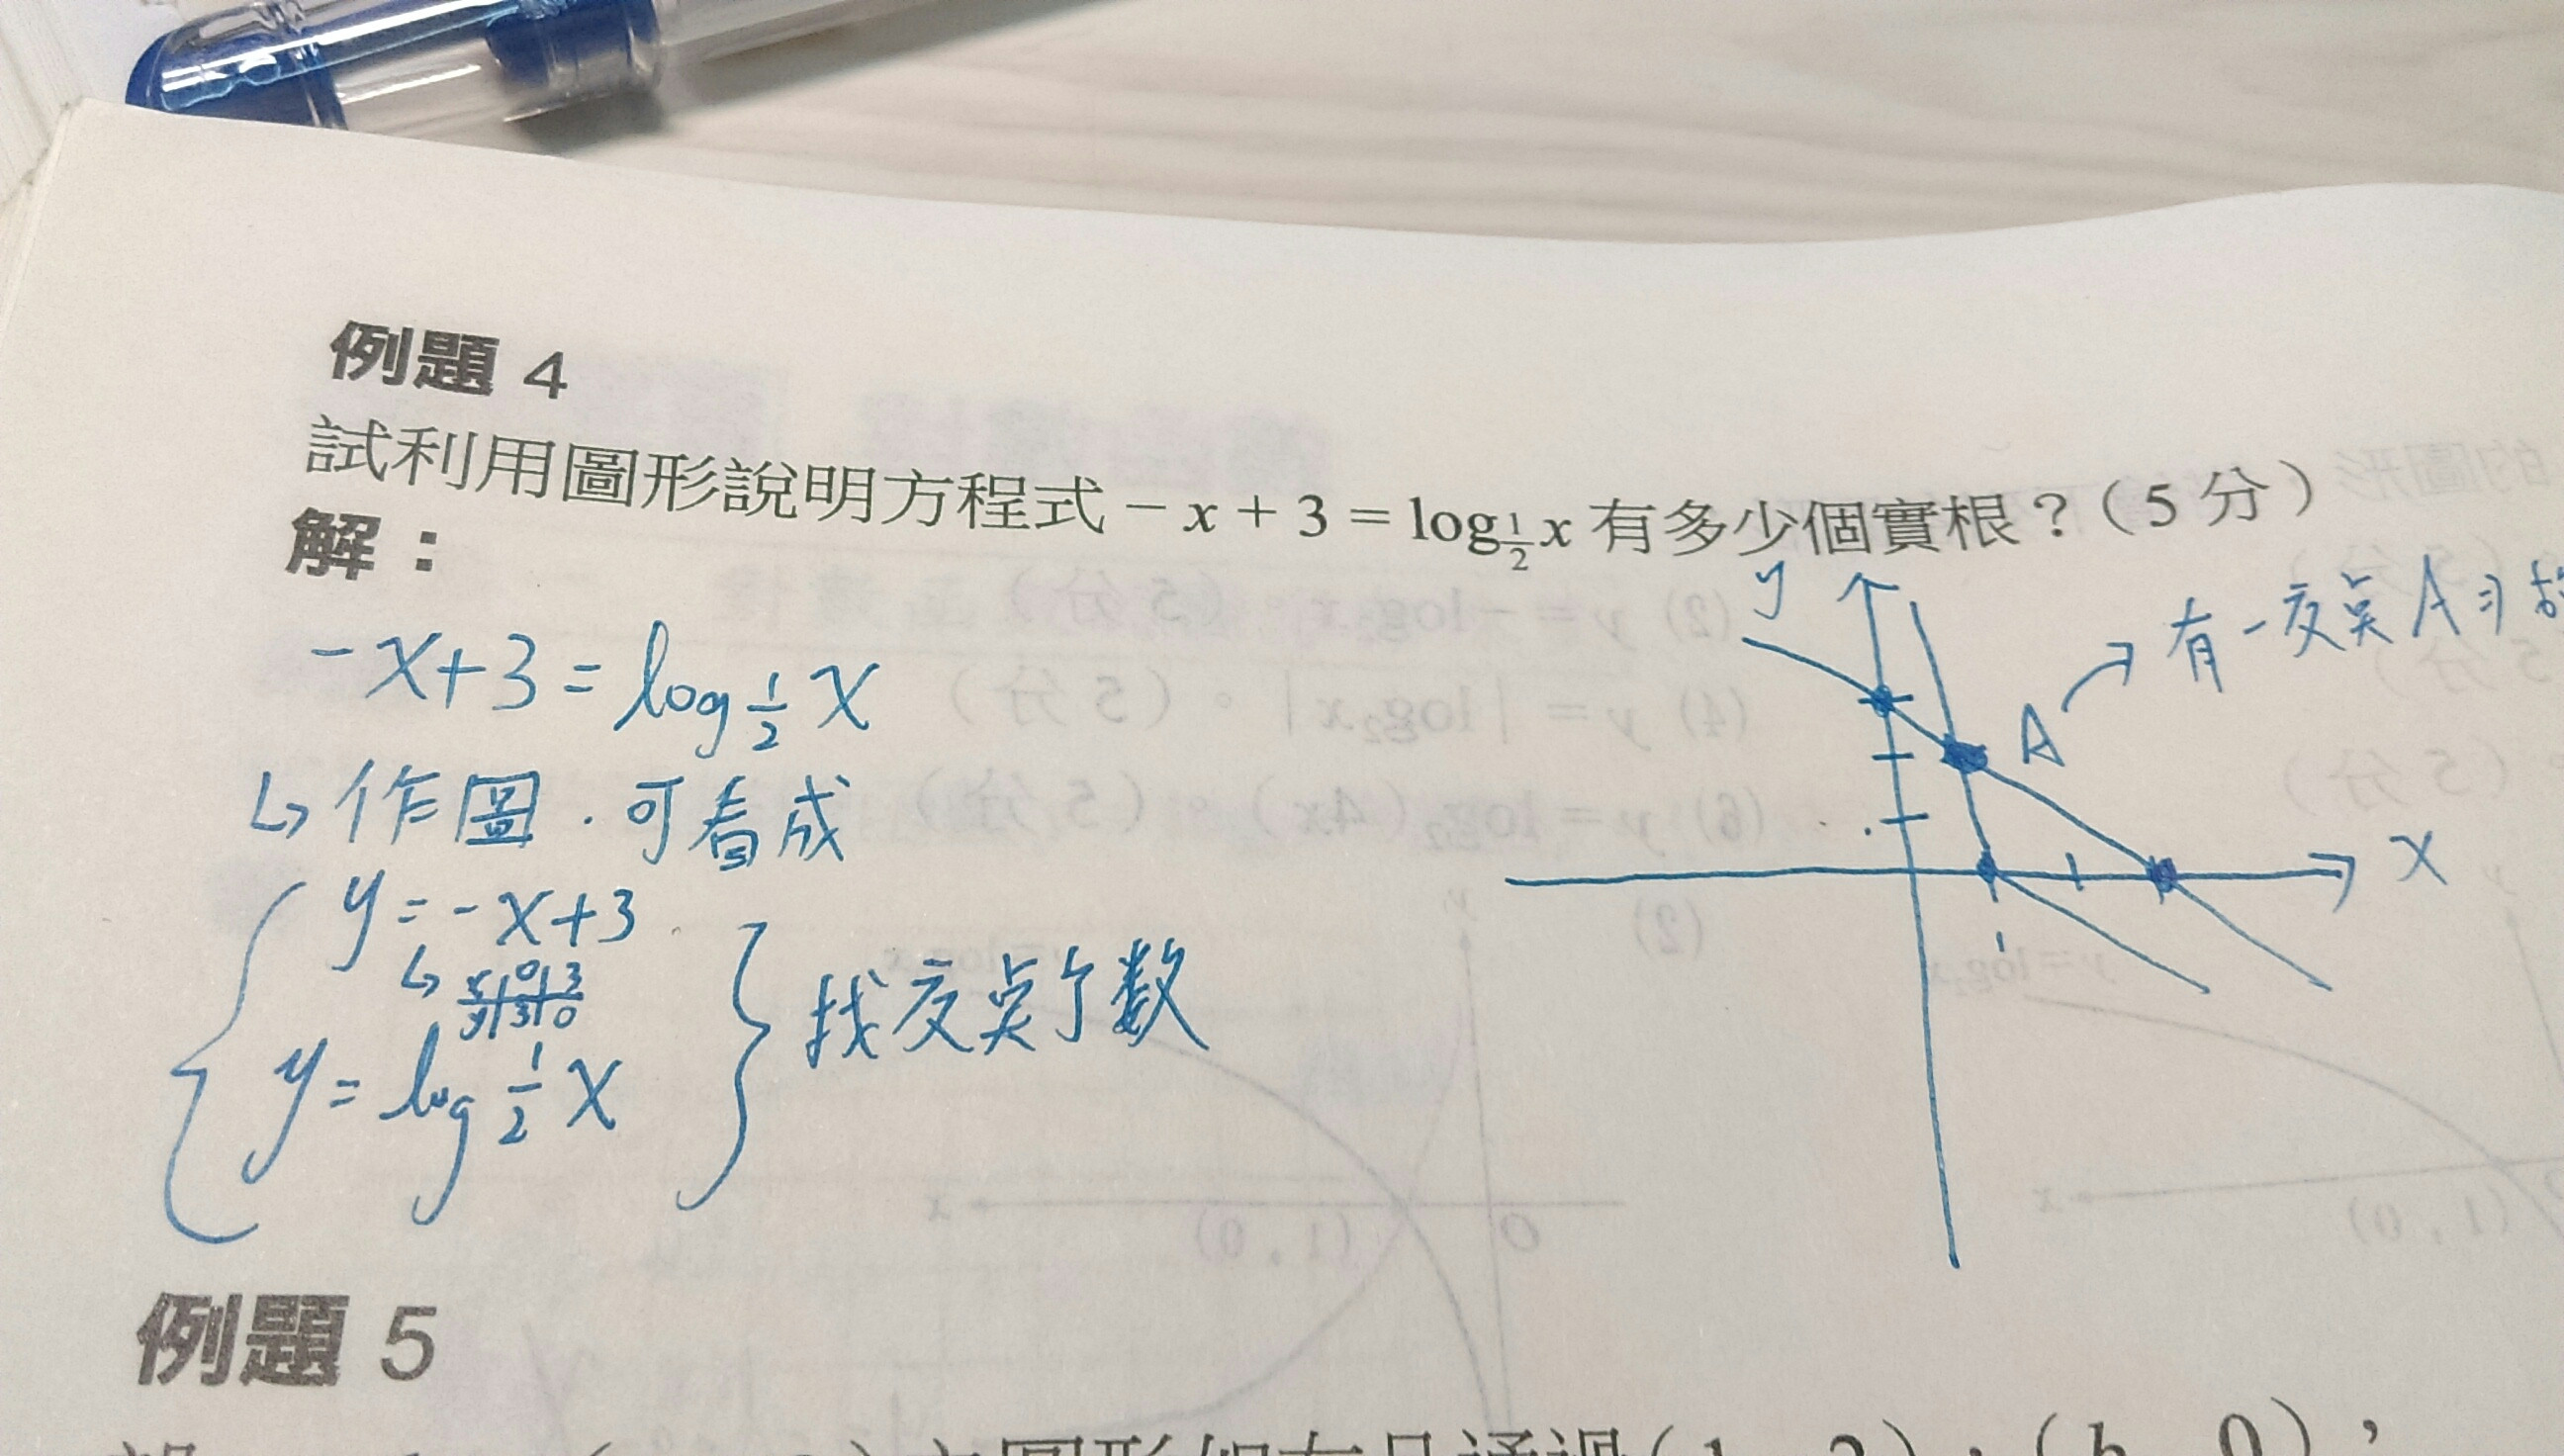 例題 4
試利用圖形說明方程式 − x + 3 = log½x 有多少個實根？（5 分）
解：
-x+3 = log ½ x
↳ 作圖．可看成
y = -x+3
↳ x | 0 | 3
y | 3 | 0
y = log ½ x
找交點个數
y
A → 有一交點A
x
1
例題 5